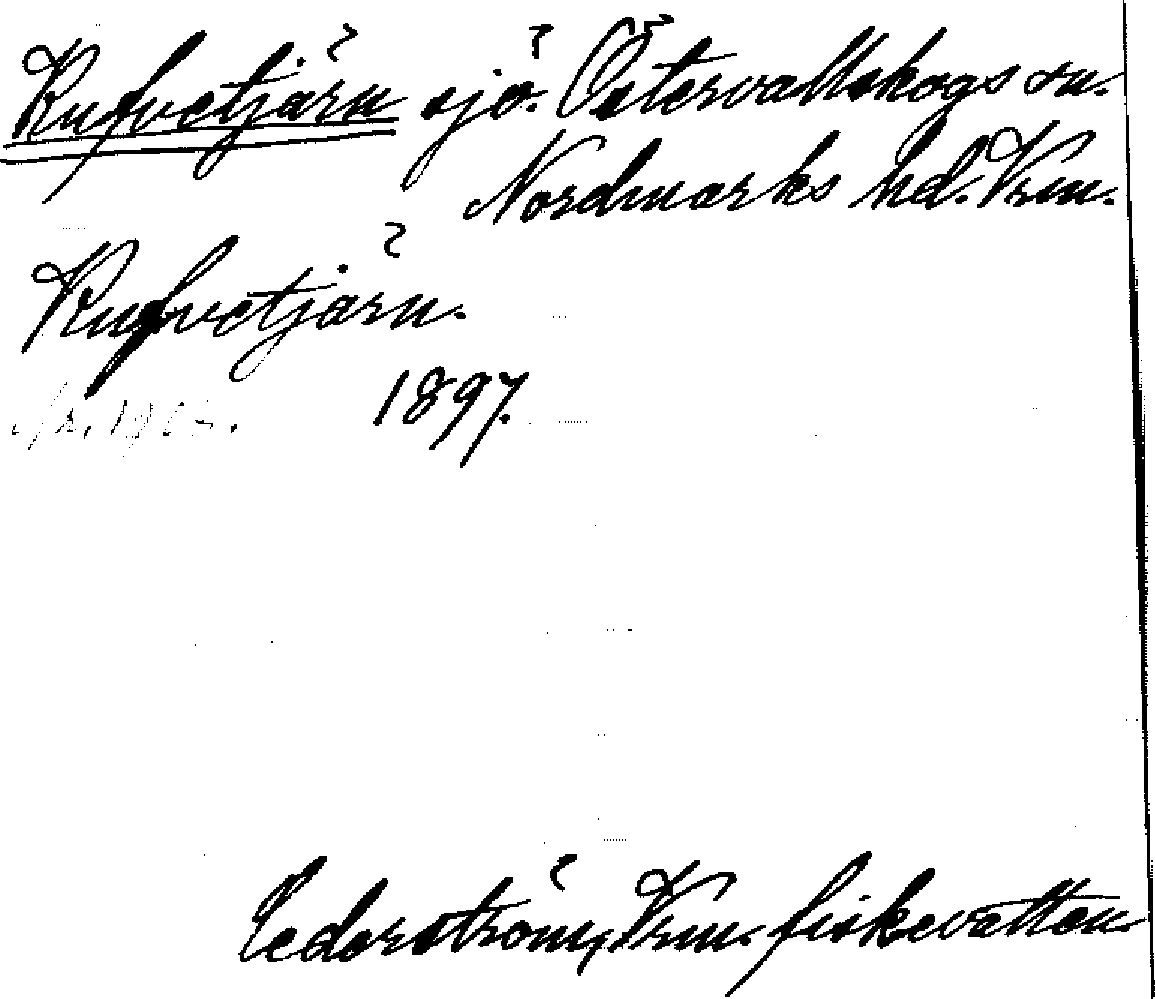 Rufvetjärn sjö. Östervallskogs sn.
Nordmarks hd. Vrm.
Rufvetjärn.
1897.
Cederström, Vrm. fiskevatten